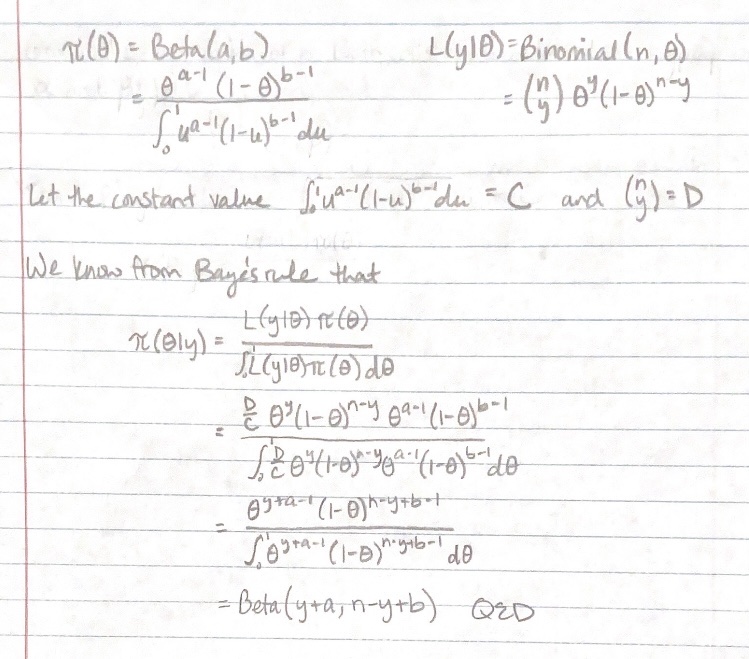 π(θ) = Beta(a,b)    L(y|θ) = Binomial(n, θ)
= θ^{a-1} (1-θ)^{b-1} / ∫_0^1 u^{a-1}(1-u)^{b-1} du    = (n y) θ^y (1-θ)^{n-y}
Let the constant value ∫_0^1 u^{a-1}(1-u)^{b-1} du = C and (n y) = D
We know from Bayes rule that
π(θ|y) = L(y|θ) π(θ) / ∫_0^1 L(y|θ) π(θ) dθ
= D/C θ^y (1-θ)^{n-y} θ^{a-1} (1-θ)^{b-1} / ∫_0^1 D/C θ^y (1-θ)^{n-y} θ^{a-1} (1-θ)^{b-1} dθ
= θ^{y+a-1} (1-θ)^{n-y+b-1} / ∫_0^1 θ^{y+a-1} (1-θ)^{n-y+b-1} dθ
= Beta(y+a, n-y+b)    QED